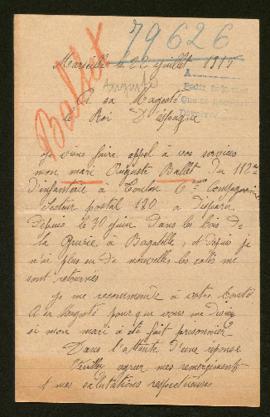 79626
Ballet
Marseille le 22 juillet 1915
Auguste
A sa Majesté
le Roi d'espagne
je viens faire appel à vos services
mon mari Auguste Ballet du 112me
d'infanterie à Toulon 6e Compagnie
Secteur postal 120 a disparu
Depuis le 30 juin Dans le bois de
la Gruerie à Bagatelle Depuis je
n'ai plus eu de nouvelles les colis me
sont retournés
je me recommande à votre bonté
pour que vous me disiez
si mon mari a été fait prisonnier
Dans l'attente d'une réponse
Veuillez agréer mes remerciements
mes salutations respectueuses